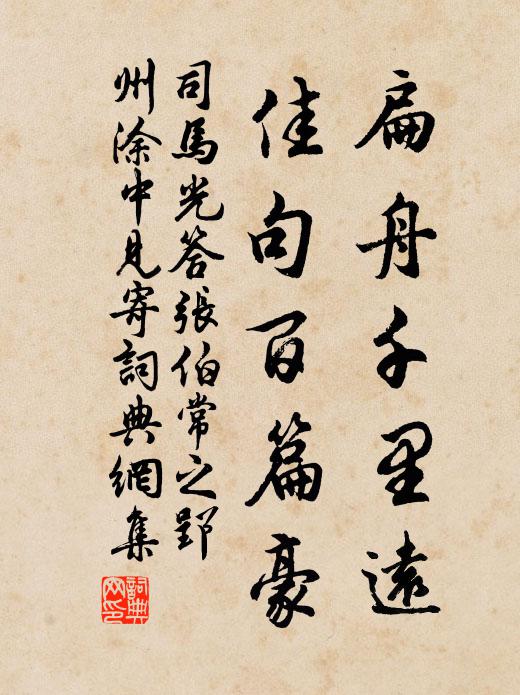 扁舟千里遠
佳句百篇豪
司馬光答張伯常之郢
州涂中見寄詞典網集
詞典網印